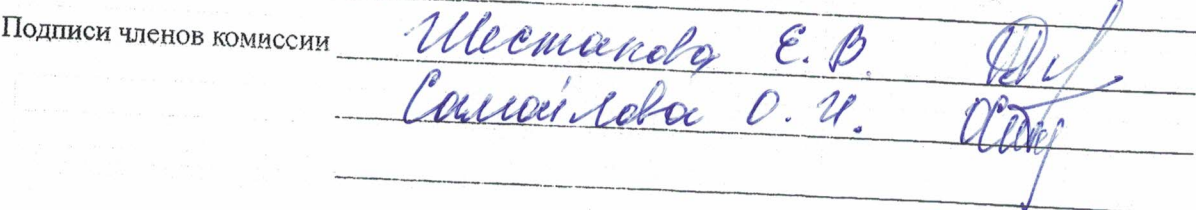 Подписи членов комиссии Шестакова Е. В.
Самойлова О. И.